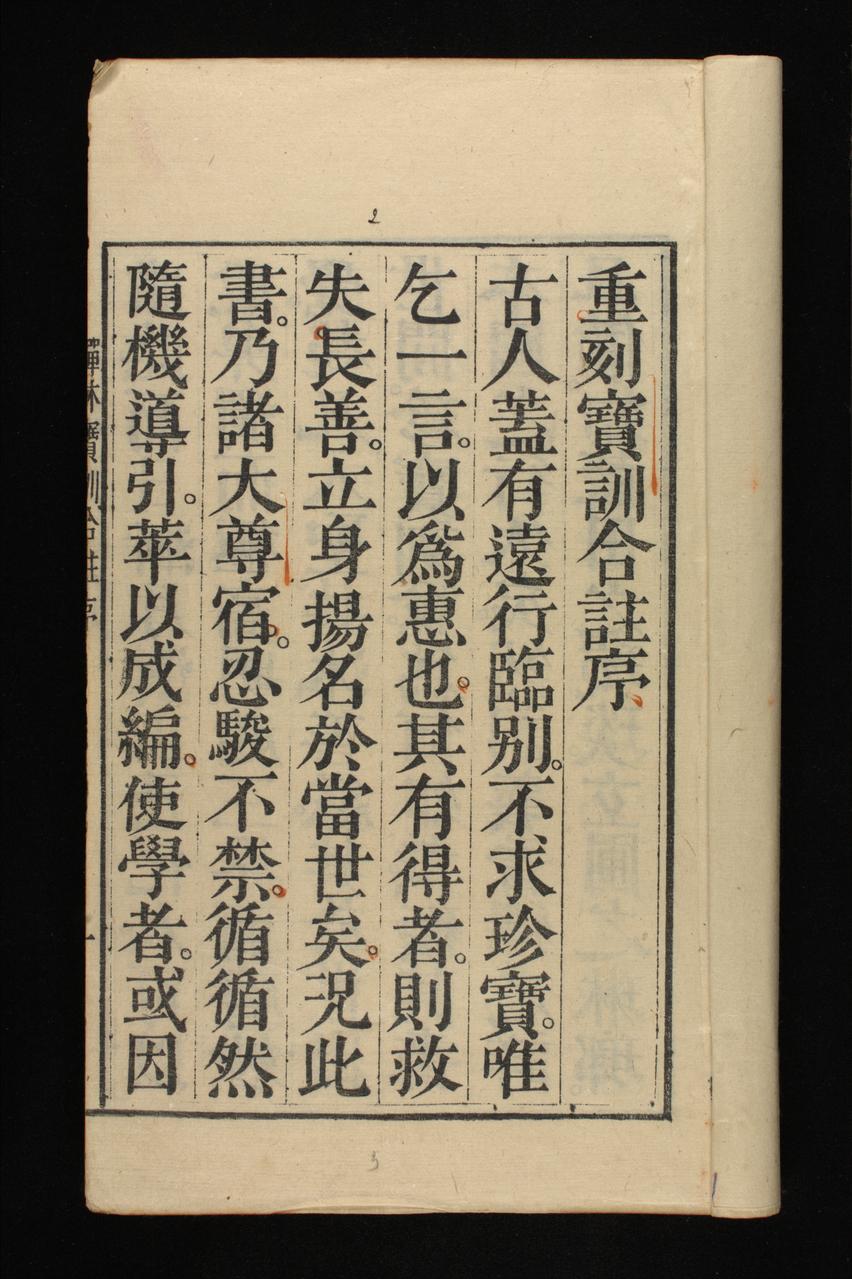 重刻寶訓合註序
古人蓋有遠行臨别。不求珍寶。唯
乞一言。以爲惠也。其有得者。則救
失。長善。立身揚名於當世矣。况此
書。乃諸大尊宿。忍駿不禁。循循然
隨機導引。萃以成編。使學者。或因
禪林寶訓合註序
一
2
3